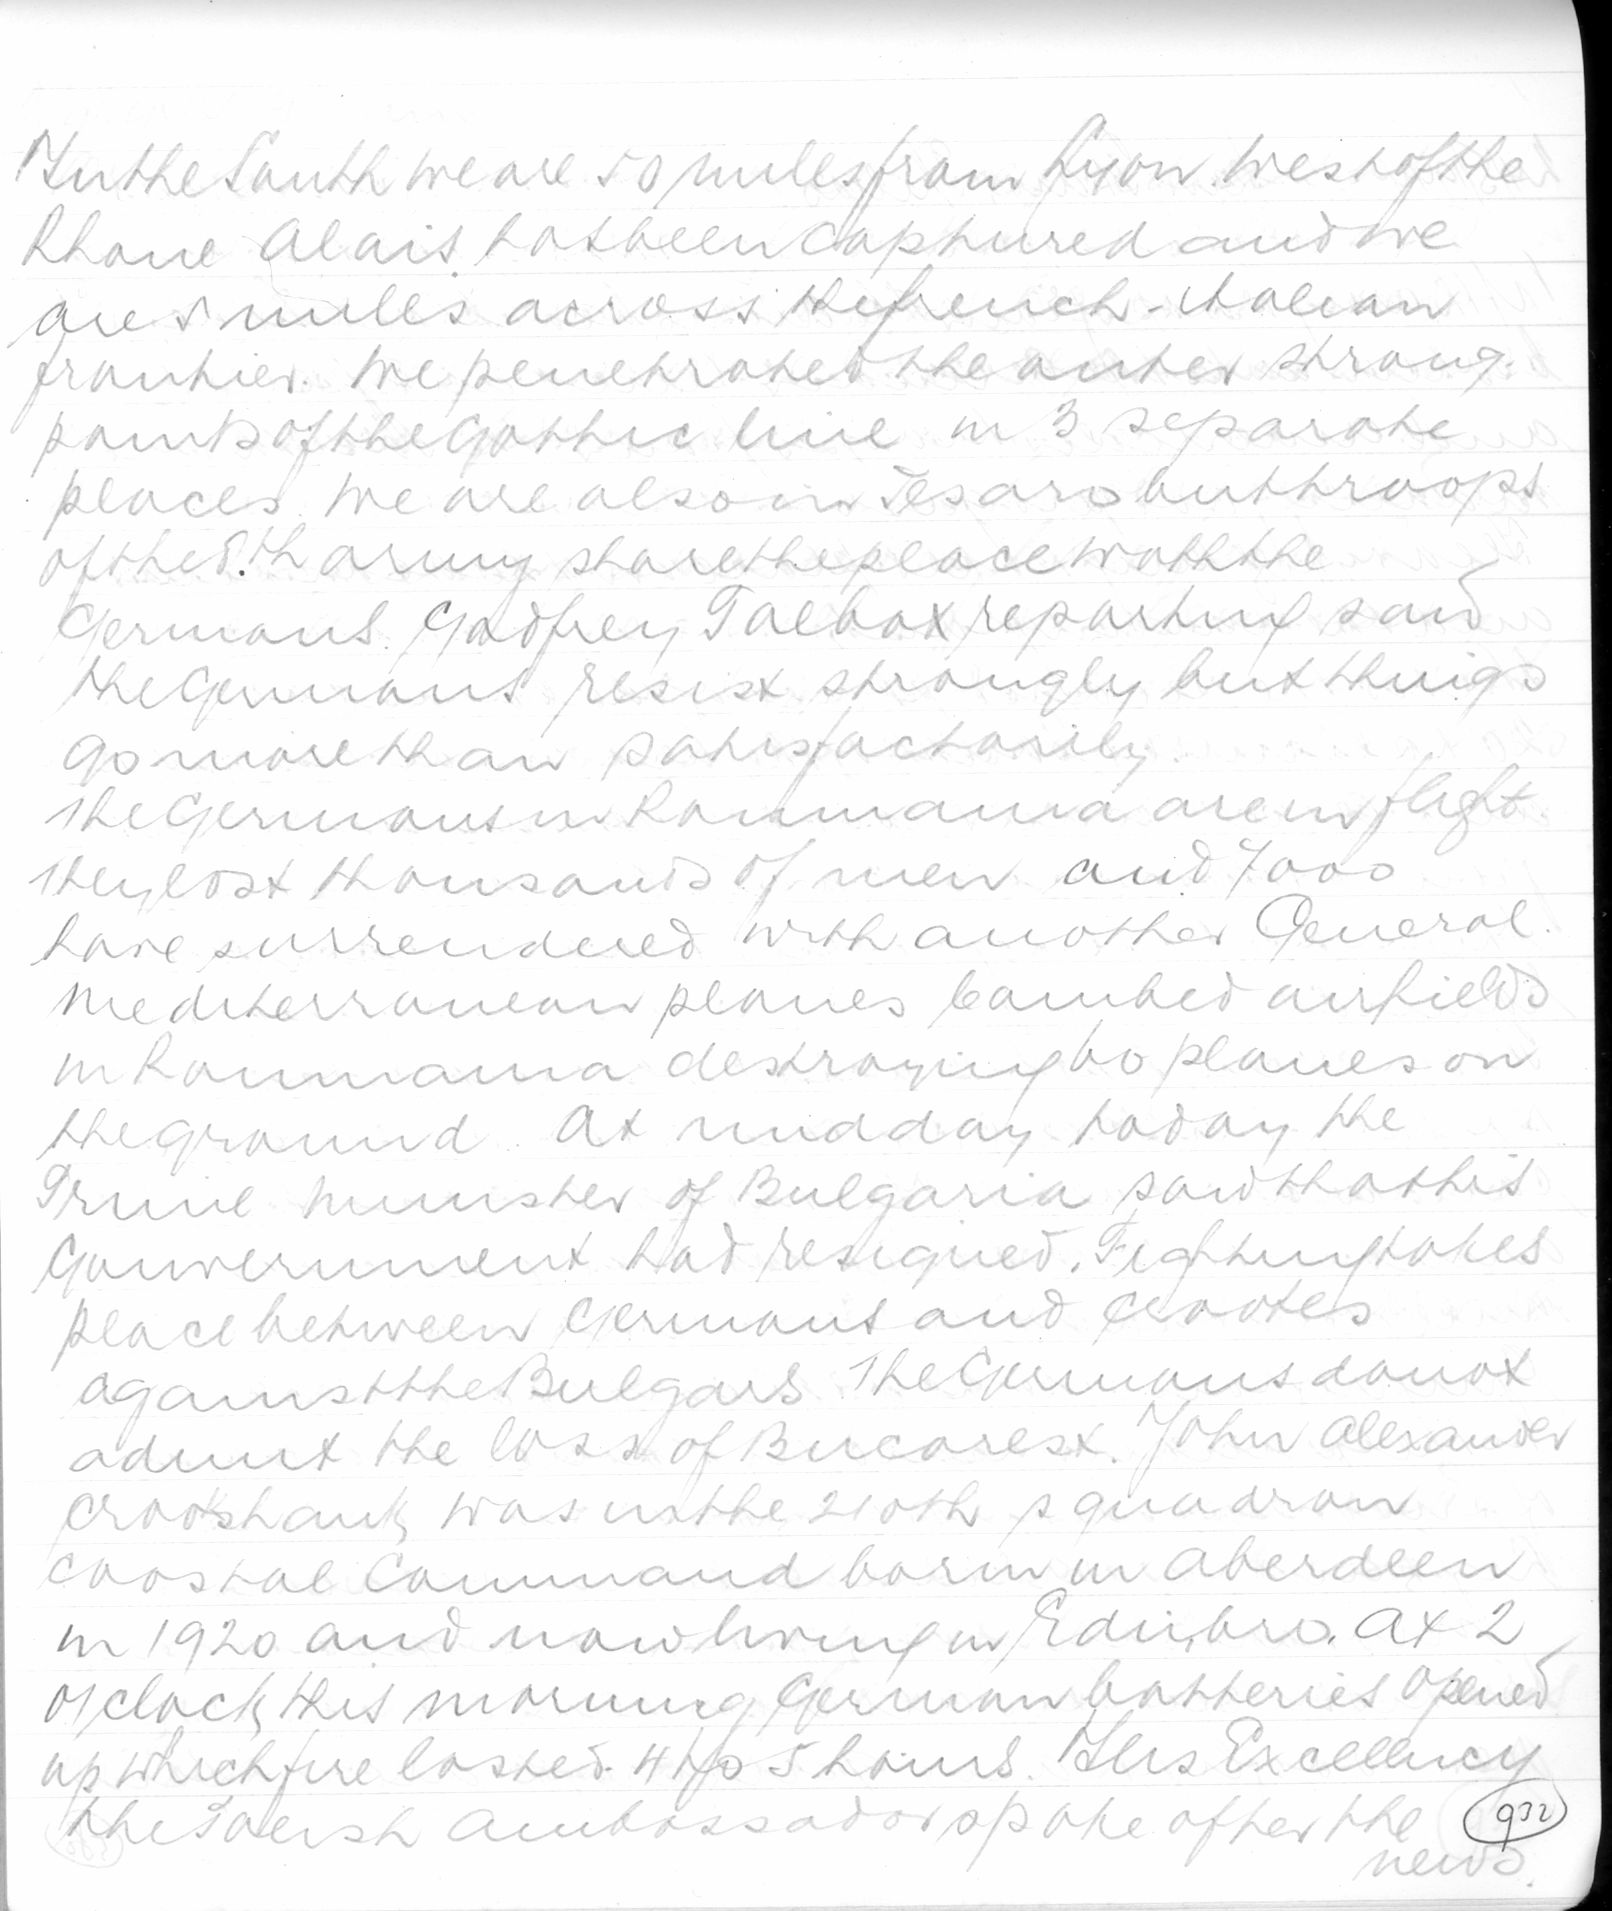 In the South we are 50 miles from Lyon. West of the
Rhone Alais has been captured and we
are 5 miles across the french-italian
frontier. We penetrated the outer strong-
points of the Gothic line in 3 separate
places. We are also in Pesaro but troops
of the 8.th army share the place with the
Germans. Godfrey Talbot reporting said
the Germans resist strongly but things
go more than satisfactorily.
The Germans in Roumania are in flight.
They lost thousands of men and 7000
have surrendered with another General.
Mediterranean planes bombed airfields
in Roumania destroying 60 planes on
the ground. At midday today the
Prime Minister of Bulgaria said that his
Gouvernment had resigned. Fighting takes
place between Germans and
against the Bulgars. The Germans do not
admit the loss of Bucarest. John Alexander
Crookshank was in the 210th squadron
Coastal Command born in Aberdeen
in 1920 and now living in Edinbro. At 2
o'clock this morning German batteries opened
up which fire lasted 4 to 5 hours. His Excellency
the Polish Ambassador spoke after the
news.
932